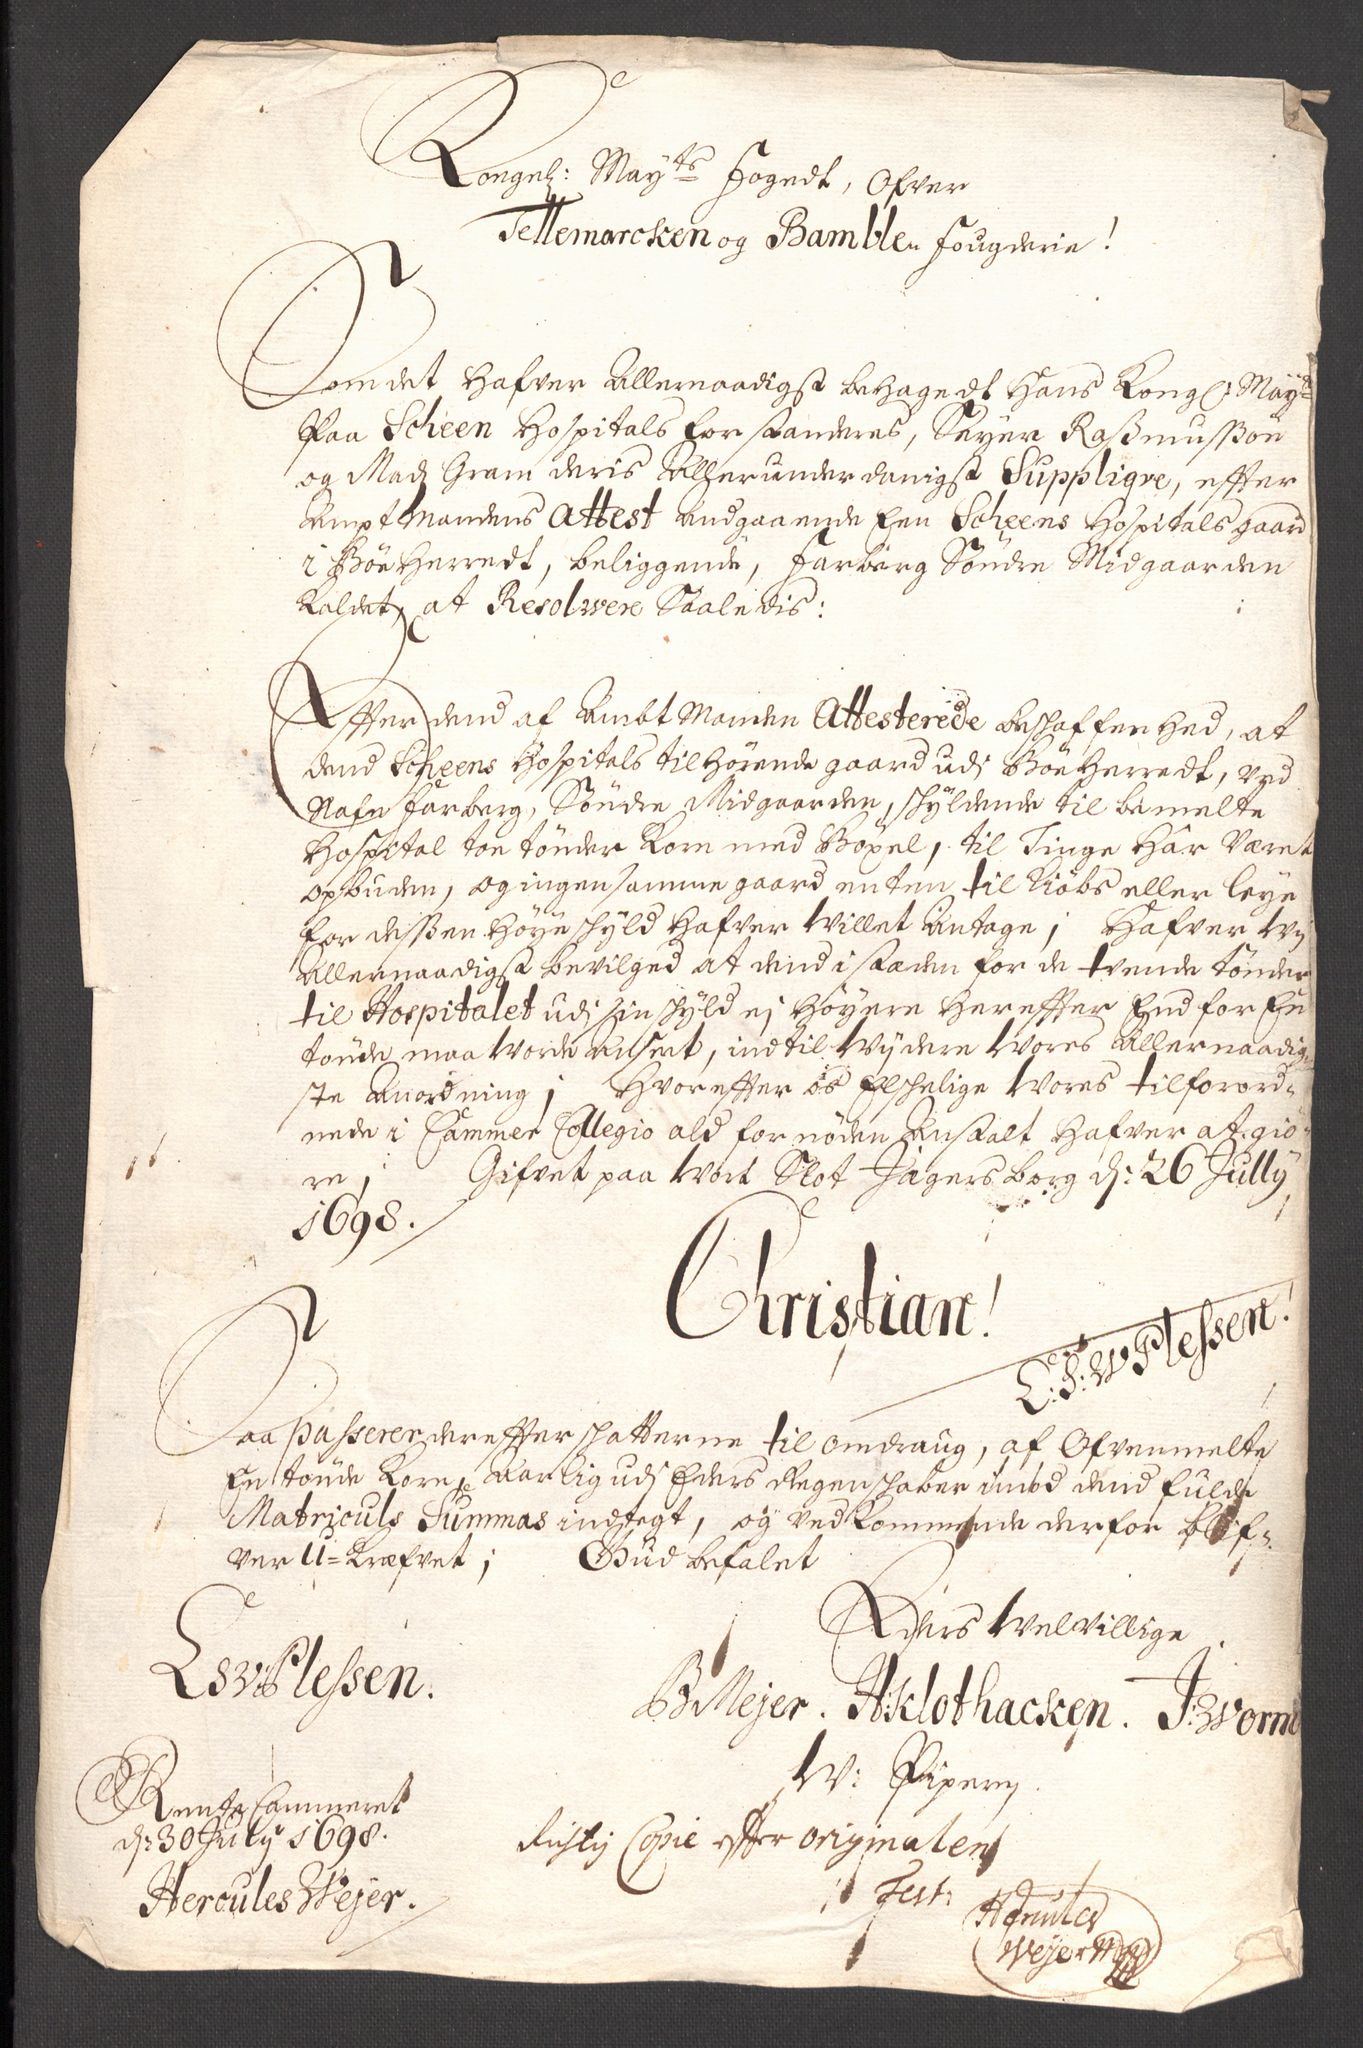 Kongel: May:ts Fogedt, Ofver
Tellemarcken og Bamble Fougderie!
Som det Hafver Allernaadigst behagedt Hans Kongl: May:ts
Paa Scheen Hospitals Forstanderes, Seyer Rassmussøn
og Mads Gram deris Allerunderdanigst Suppliqve, effter
Amptmandens Attest Andgaaende Een Scheens Hospitals gaard
i Böe Herredt, beliggende, Farberg Söndre Midgaarden
Kaldet, at Resolwere Saaledis:
Effter dend af Ambtmanden Attesterede beschaffenhed, at
dend Scheens Hospitals tilhörende gaard udj Böe Herredt, ved
Nafn Farberg, Söndre Midgaarden, schÿldende til bemelte
Hospital toe tönder Korn med Böxel, til Tinge Har Været
opbuden, og ingen samme gaard enten til Kiöbs eller leye
for dessen Höye schÿld Hafver Willet Antage; Hafver Wj
Allernaadigst bevilged at dend i stæden for de tvende tönder
til Hospitalet udj sin schÿld ej Höyere Hereffter End for En
tönde maa Worde Anseet, indtil Wÿdere Wores Allernaadig-
ste Anordning; Hvoreffter os Elschelige Wores tilforord-
nede i Cammer Collegio ald fornöden Anstalt Hafver at giö-
re; Gifvet paa Wort Slot Jägersborg dj: 26 Jully
1698.
Christian!
C: S: W Plessen!
Saa passerer dereffter schatterne til omdraug, af Ofvenmelte
En tönde Korn, Aarlig udj Eders Regenschaber imod dend fulde
Matriculs Summas indtegt, og vedkommende derfor blif-
ver U-Kræfvet; Gud befalet
Eders Welvillige
CSW Plessen.
B Mejer. H: Klothacken. J: Worm
W: Pipery
Rente Cammeret
dj: 30 July 1698.
Hercules Wejer.
Richtig Copie effter originalen
Test:
Hercules
Weyer